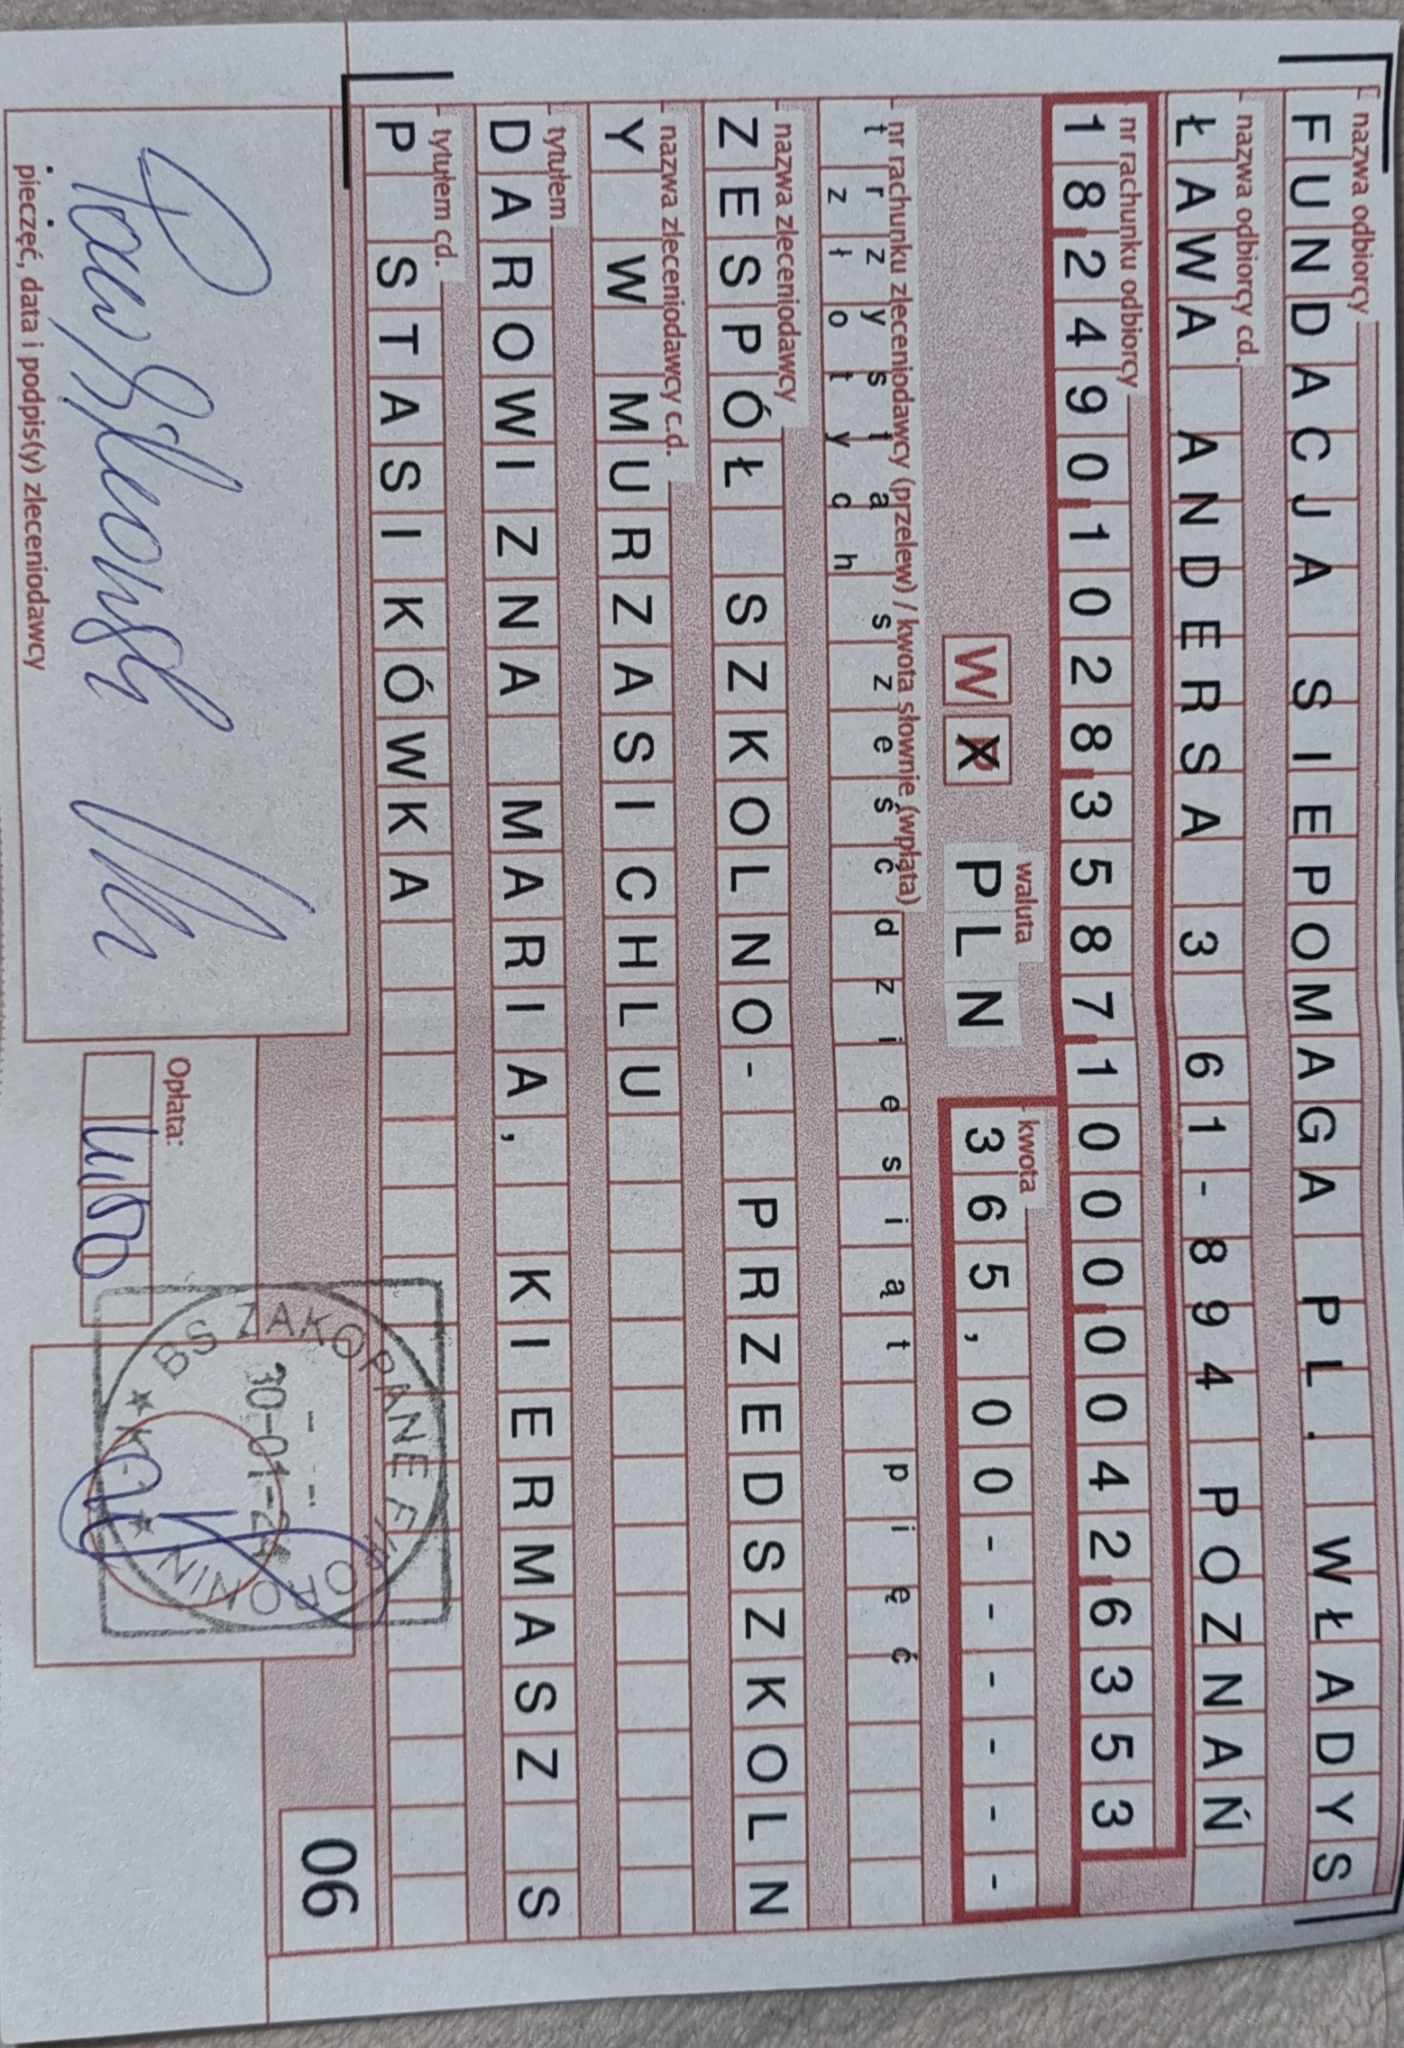 nazwa odbiorcy
FUNDACJA SIEPOMAGA PL. WŁADYS
nazwa odbiorcy cd.
ŁAWA ANDERSA 3 61-894 POZNAŃ
nr rachunku odbiorcy
18249010283587100000426353
W X waluta PLN kwota 365,00------
nr rachunku zleceniodawcy (przelew) / kwota słownie (wpłata)
trzysta sześćdziesiąt pięć
złotych
nazwa zleceniodawcy
ZESPÓŁ SZKOLNO- PRZEDSZKOLN
nazwa zleceniodawcy c.d.
Y W MURZASICHLU
tytułem
DAROWIZNA MARIA, KIERMASZ S
tytułem cd.
P STASIKÓWKA
pieczęć, data i podpis(y) zleceniodawcy
Opłata:
BS ZAKOPANE
30-01-24
06